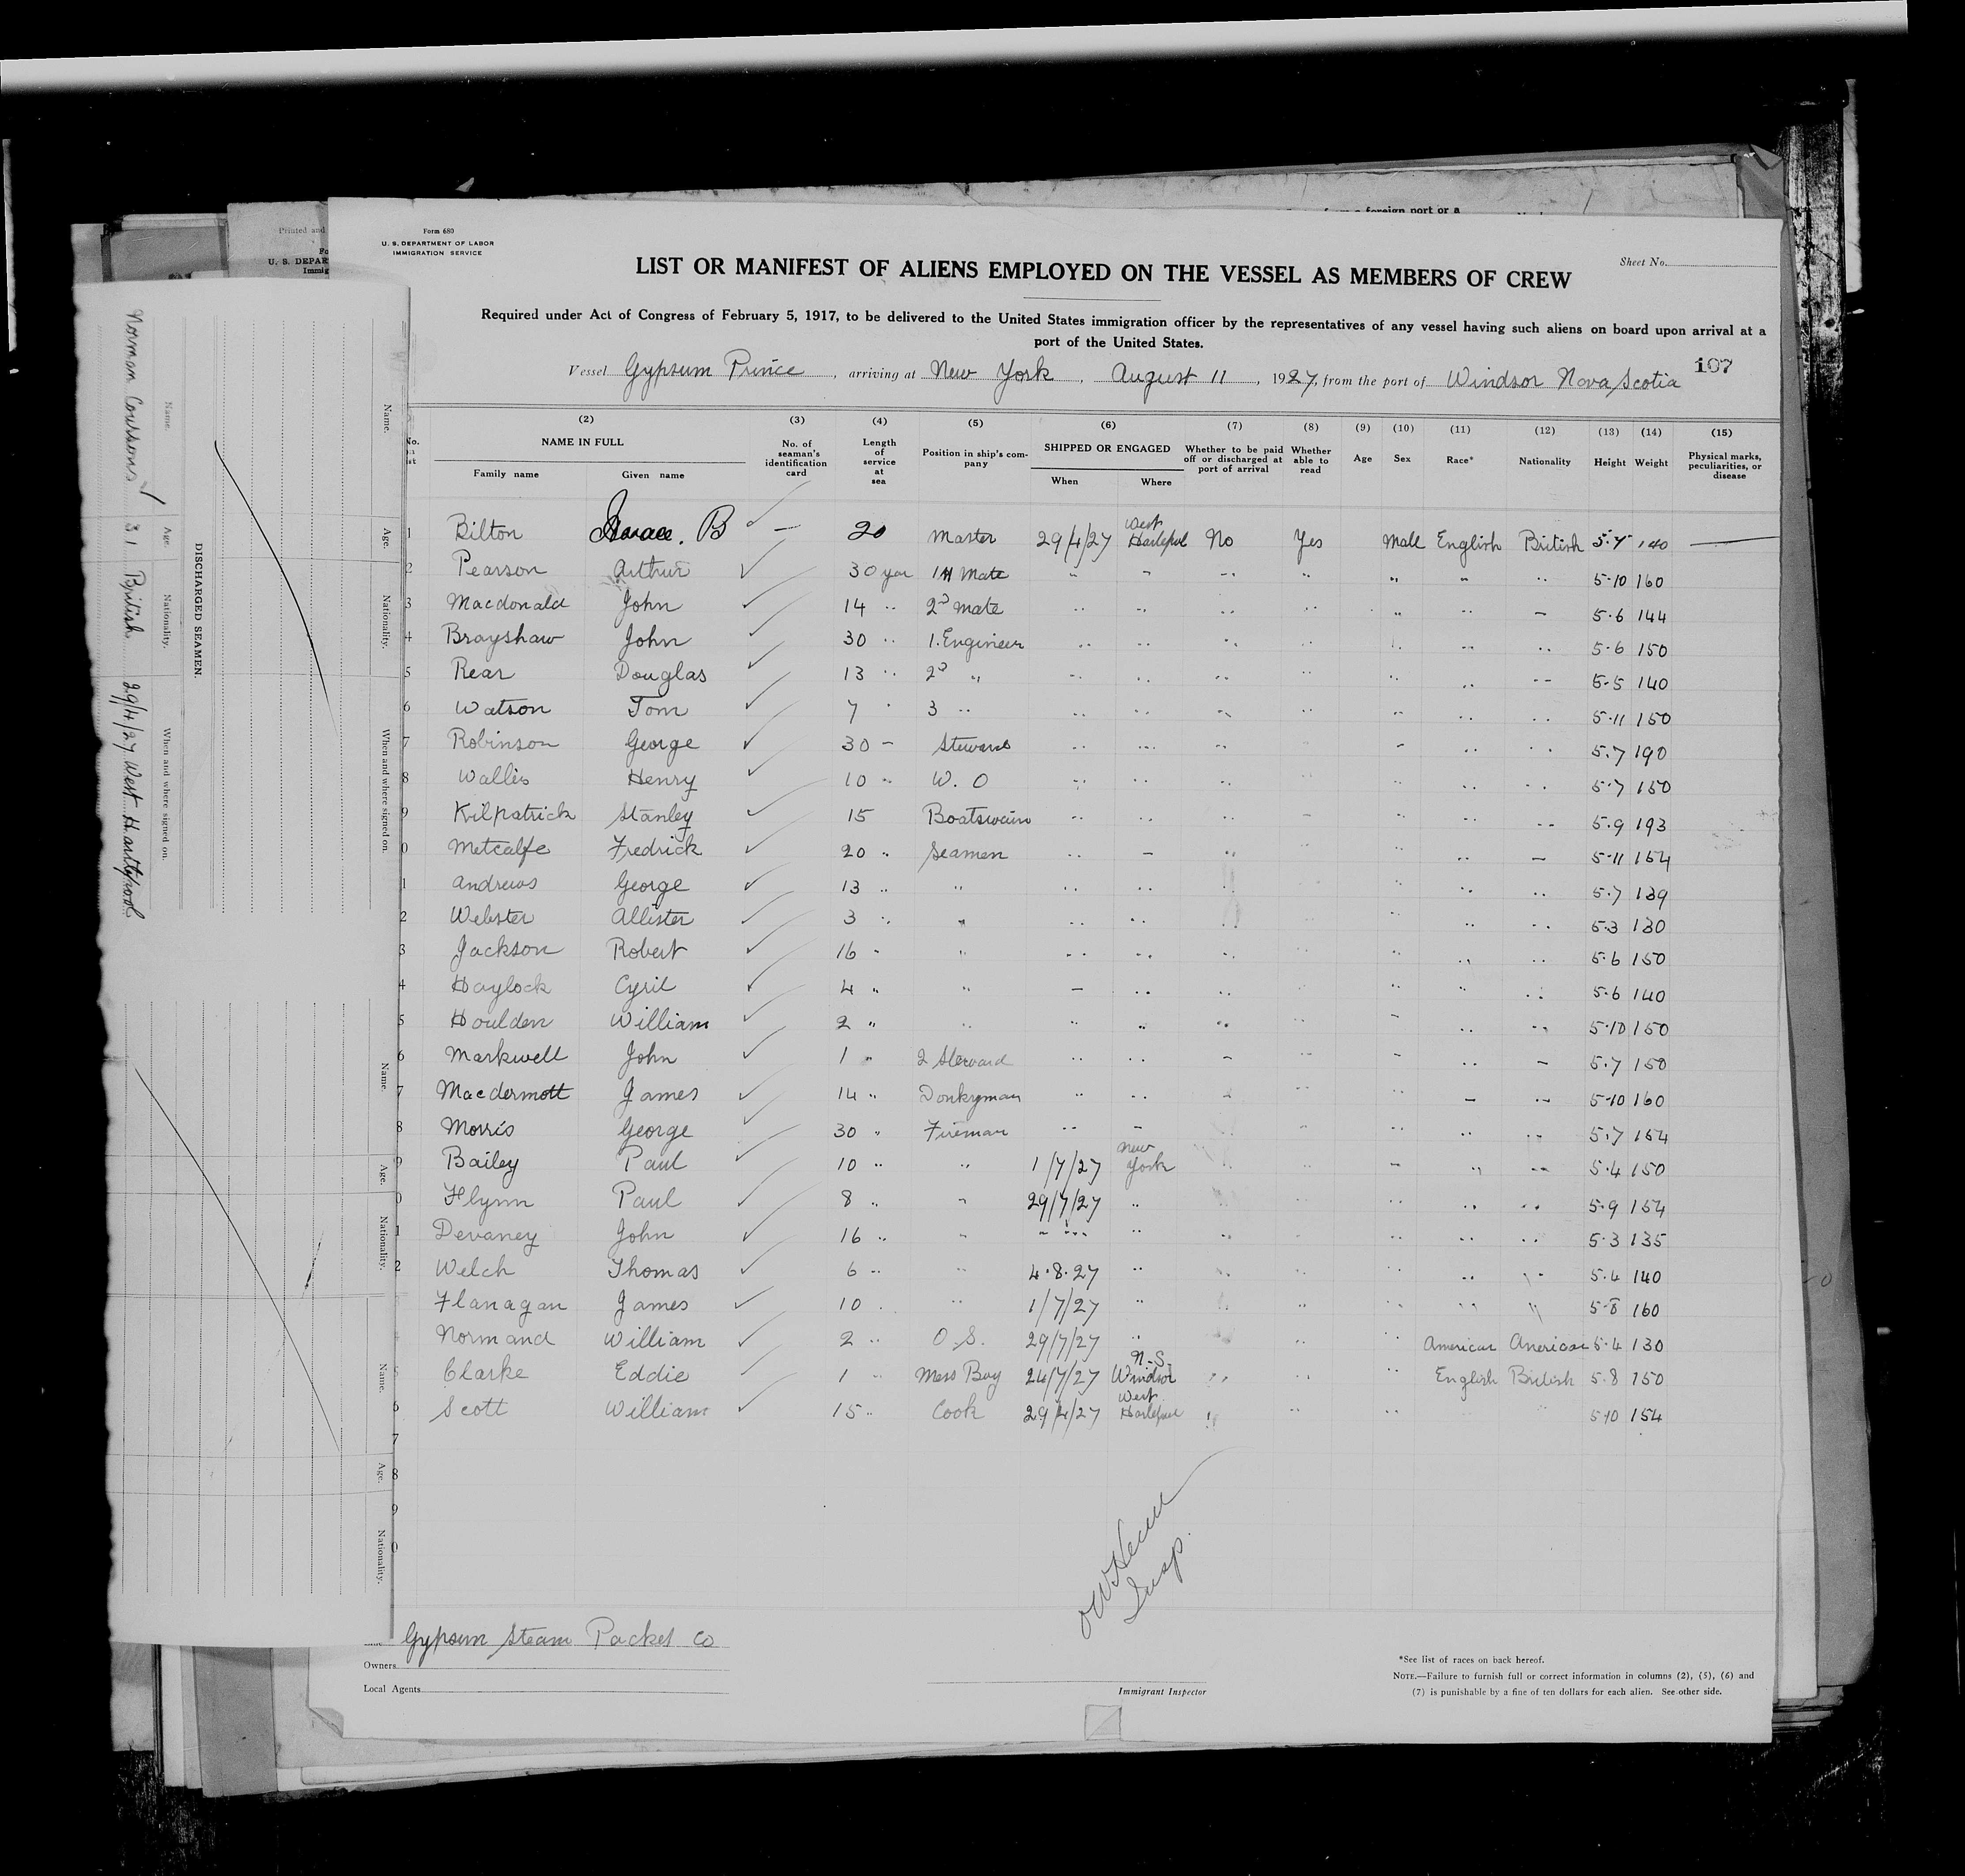 foreign port or a
Printed and
Fo
U. S. DEPAR
Immig
Form 680
U. S. DEPARTMENT OF LABOR
IMMIGRATION SERVICE
Sheet No.
LIST OR MANIFEST OF ALIENS EMPLOYED ON THE VESSEL AS MEMBERS OF CREW
Required under Act of Congress of February 5, 1917, to be delivered to the United States immigration officer by the representatives of any vessel having such aliens on board upon arrival at a
port of the United States.
107
Vessel Gypsum Prince, arriving at New York, August 11, 1927, from the port of Windsor Nova Scotia
(2) (3) (4) (5) (6) (7) (8) (9) (10) (11) (12) (13) (14) (15)
No. NAME IN FULL No. of seaman's identification card Length of service at sea Position in ship's company SHIPPED OR ENGAGED Whether to be paid off or discharged at port of arrival Whether able to read Age Sex Race* Nationality Height Weight Physical marks, peculiarities, or disease
Family name Given name When Where
1 Bilton B ✓ — 20 Master 29/4/27 West Hartlepool No Yes Male English British 5.7 140 —
2 Pearson Arthur ✓ 30 year 1st Mate " " " " " " " 5.10 160
3 Macdonald John ✓ 14 " 2D Mate " " " " " " " 5.6 144
4 Brayshaw John ✓ 30 " 1.Engineer " " " " " " " 5.6 150
5 Rear Douglas ✓ 13 " 2D " " " " " " " " 5.5 140
6 Watson Tom ✓ 7 " 3 " " " " " " " " 5.11 150
7 Robinson George ✓ 30 " Steward " " " " " " " 5.7 190
8 Wallis Henry ✓ 10 " W. O " " " " " " " 5.7 150
9 Kilpatrick Stanley ✓ 15 Boatswain " " " " " " " 5.9 193
0 Metcalfe Fredrick ✓ 20 " Seamen " " " " " " " 5.11 154
1 Andrews George ✓ 13 " " " " " " " " " 5.7 139
2 Webster Allister ✓ 3 " " " " " " " " " 5.3 130
3 Jackson Robert ✓ 16 " " " " " " " " " 5.6 150
4 Haylock Cyril ✓ 4 " " " " " " " " " 5.6 140
5 Houlden William ✓ 2 " " " " " " " " " 5.10 150
6 Markwell John ✓ 1 " 2 Steward " " " " " " " 5.7 150
7 Macdermott James ✓ 14 " Donkyman " " " " " " " 5.10 160
8 Morris George ✓ 30 " Fireman " " " " " " " 5.7 154
9 Bailey Paul ✓ 10 " " 1/7/27 New York " " " " " 5.4 150
0 Flynn Paul ✓ 8 " " 29/7/27 " " " " " " 5.9 154
1 Devaney John ✓ 16 " " " " " " " " " 5.3 135
2 Welch Thomas ✓ 6 " " 4.8.27 " " " " " " 5.4 140
Flanagan James ✓ 10 " " 1/7/27 " " " " " " 5.8 160
Normand William ✓ 2 " O.S. 29/7/27 " " " " American American 5.4 130
Clarke Eddie ✓ 1 " Mess Boy 24/7/27 N.S. Windsor " " " English British 5.8 150
6 Scott William ✓ 15 " Cook 29/4/27 West Hartlepool " " " 5.10 154
7
8
9
0
Insp.
Gypsum Steam Packet Co
Owners
Local Agents
Immigrant Inspector
*See list of races on back hereof.
NOTE.—Failure to furnish full or correct information in columns (2), (5), (6) and
(7) is punishable by a fine of ten dollars for each alien. See other side.
DISCHARGED SEAMEN.
Name. Age. Nationality. When and where signed on.
Norman Coussons ✓ 31 British 29/4/27 West Hartlepool
Name. Age. Nationality. When and where signed on.
Name. Age. Nationality.
Name. Age. Nationality.